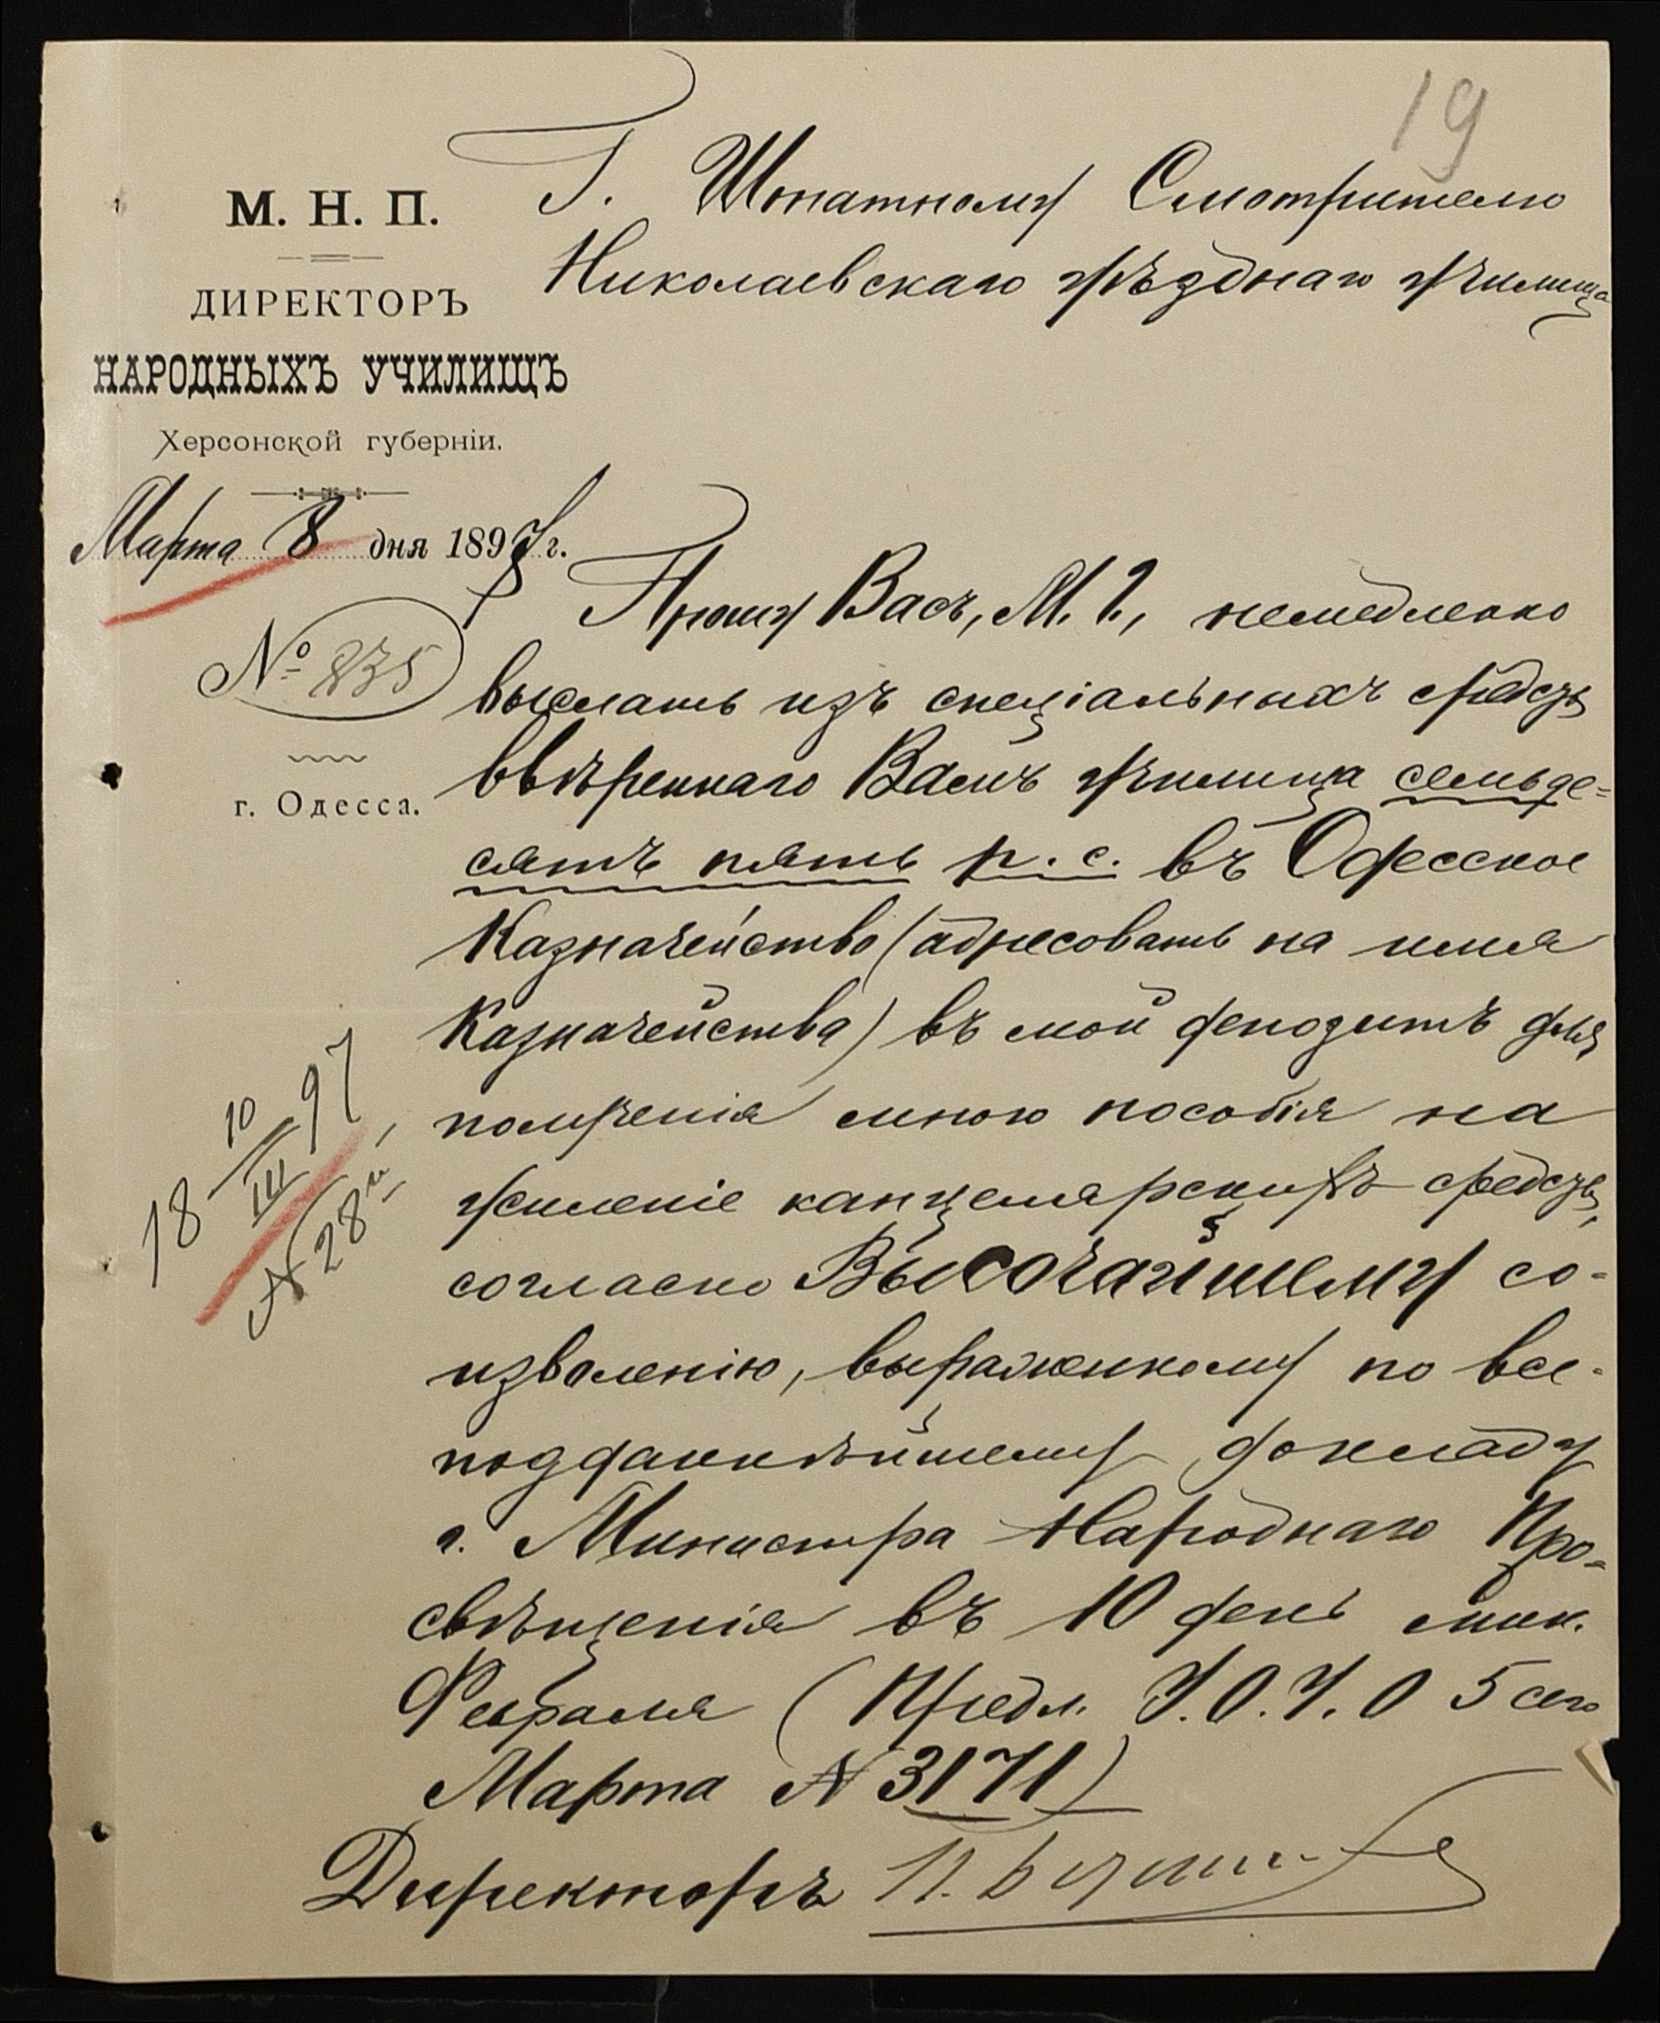 19
М. Н. П.
ДИРЕКТОРЪ
НАРОДНЫХЪ УЧИЛИЩЪ
Херсонской губерніи.
Марта 8 дня 1897 г.
№ 835
г. Одесса.
Г. Штатному Смотрителю
Николаевскаго уѣзднаго училища
Прошу Васъ, М. Г., немедленно
выслать изъ спеціальныхъ средствъ
ввѣреннаго Вамъ училища семьде=
сятъ пять р. с. въ Одесское
Казначейство (адресовать на имя
Казначейства) въ мой депозитъ для
полученія мною пособія на
усиленіе канцелярскихъ средствъ,
согласно Высочайшему со-
изволенію, выраженному по все-
подданнѣйшему докладу
г. Министра Народнаго Про=
свѣщенія въ 10 день мин.
Февраля (Предл. У. О. У. О 5 сего
Марта № 3171)
Директоръ
18 10/III 97
№ 28